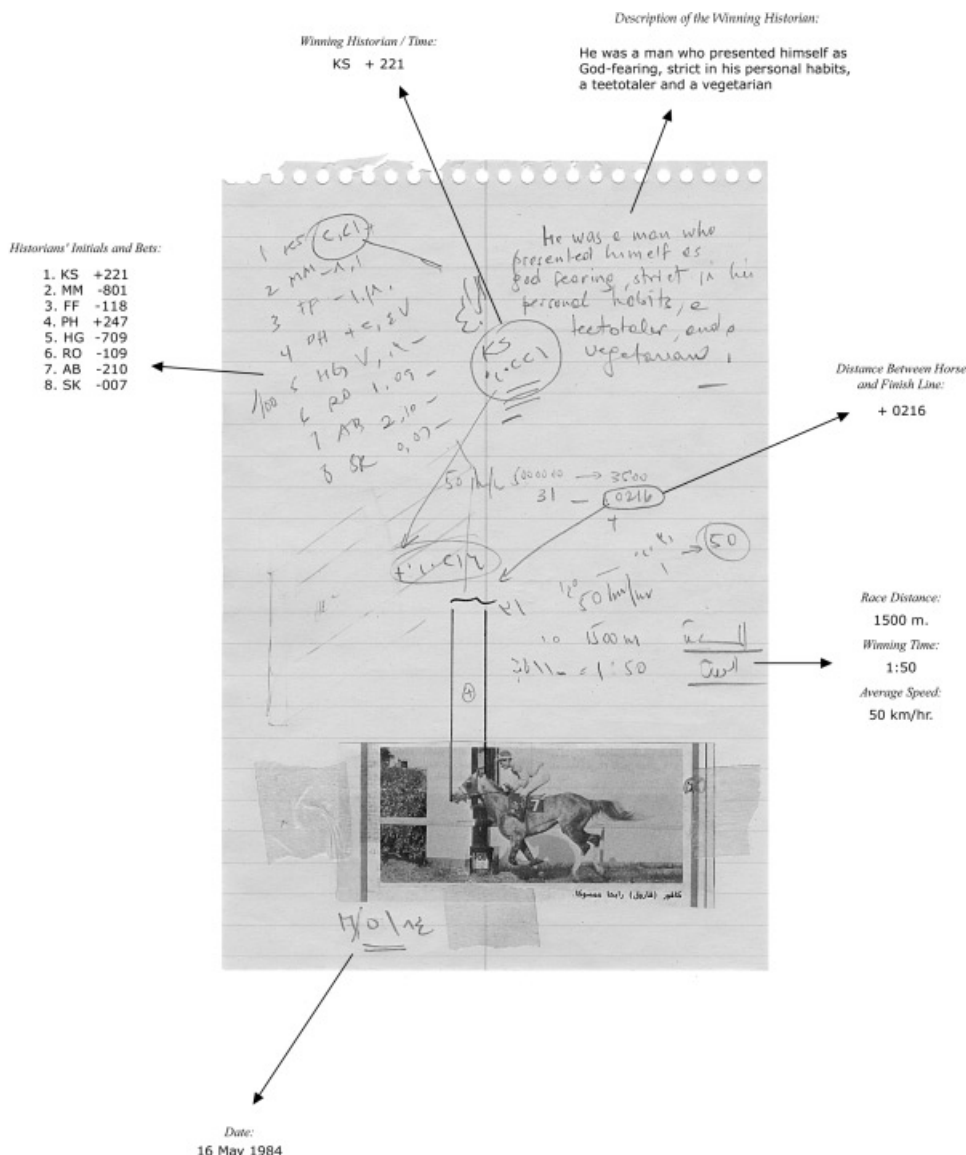 Description of the Winning Historian:
He was a man who presented himself as
God-fearing, strict in his personal habits,
a teetotaler and a vegetarian
Winning Historian / Time:
KS + 221
Historians' Initials and Bets:
1. KS +221
2. MM -801
3. FF -118
4. PH +247
5. HG -709
6. RO -109
7. AB -210
8. SK -007
1 KS
2 MM
3 FF
4 PH
5 HG
6 RO 1,09 -
7 AB 2,10 -
8 SK 0,07 -
1/100
He was a man who
presented himself as
god fearing, strict in his
personal habits, a
teetotaler, and a
vegetarian
KS
Distance Between Horse
and Finish Line:
+ 0216
5000000 → 3500
31 - 0216
+
50
50 km/hr
1500 m
1:50
Race Distance:
1500 m.
Winning Time:
1:50
Average Speed:
50 km/hr.
7
Date:
16 May 1984